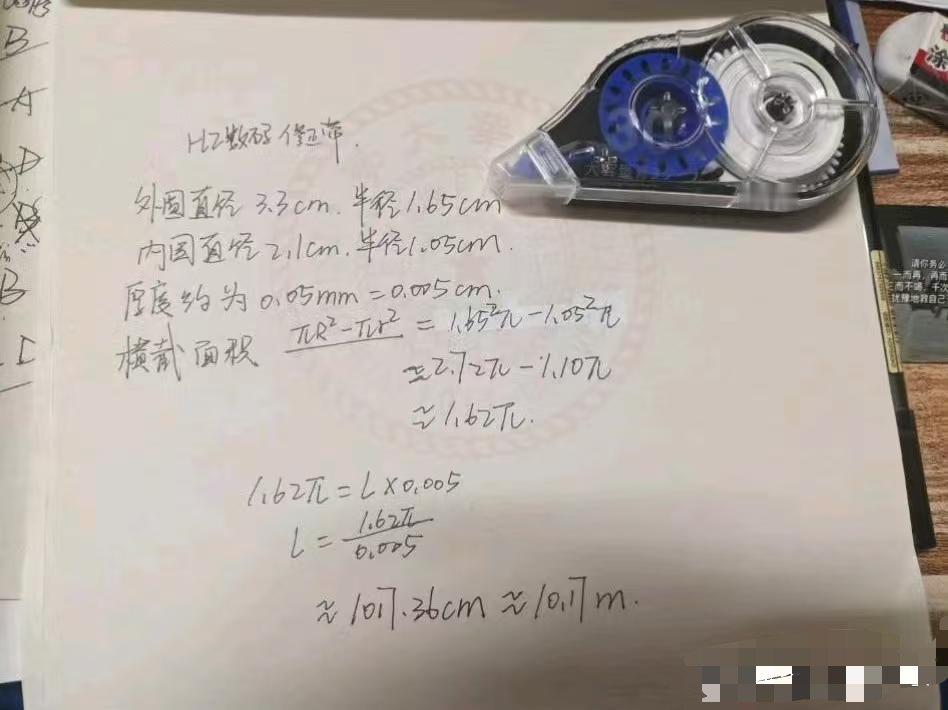 HZ数码修正带.
外圆直径3.3cm.半径1.65cm
内圆直径2.1cm.半径1.05cm.
厚度约为0.05mm=0.005cm.
横截面积 πR²-πr² = 1.65²π-1.05²π
≈2.72π-1.10π
≈1.62π.
1.62π=L×0.005
L=1.62π/0.005
≈1017.36cm≈10.17m.
B
A
D
B
请你务必
一而再,再而
三而不竭,千次
犹豫地救自己
涂